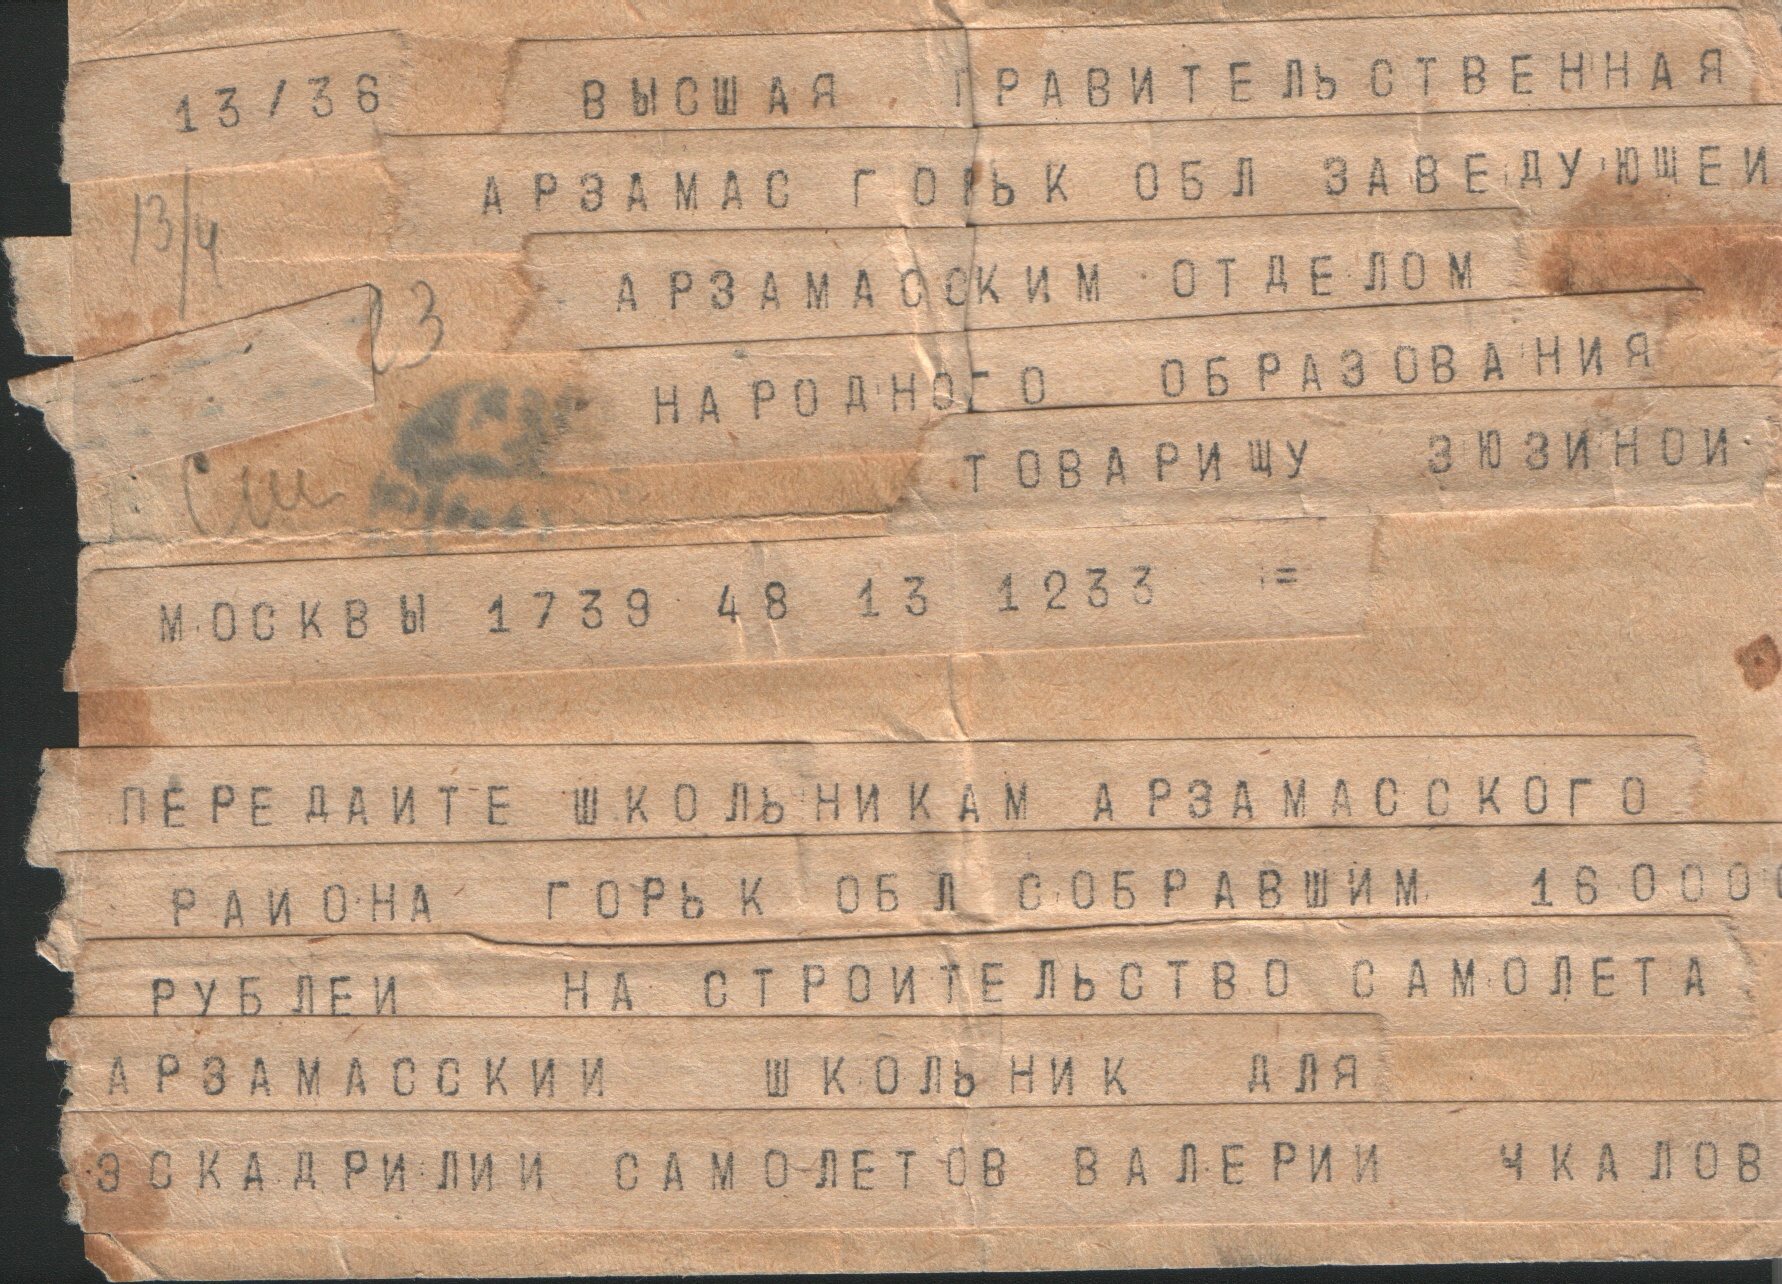 13/36 ВЫСШАЯ ПРАВИТЕЛЬСТВЕННАЯ
АРЗАМАС ГОРЬК ОБЛ ЗАВЕДУЮЩЕИ
13/4
АРЗАМАССКИМ ОТДЕЛОМ
23
НАРОДНОГО ОБРАЗОВАНИЯ
ТОВАРИЩУ ЗЮЗИНОИ
МОСКВЫ 1739 48 13 1233 =
ПЕРЕДАИТЕ ШКОЛЬНИКАМ АРЗАМАССКОГО
РАИОНА ГОРЬК ОБЛ СОБРАВШИМ 16000
РУБЛЕИ НА СТРОИТЕЛЬСТВО САМОЛЕТА
АРЗАМАССКИИ ШКОЛЬНИК ДЛЯ
ЭСКАДРИЛИИ САМОЛЕТОВ ВАЛЕРИИ ЧКАЛОВ